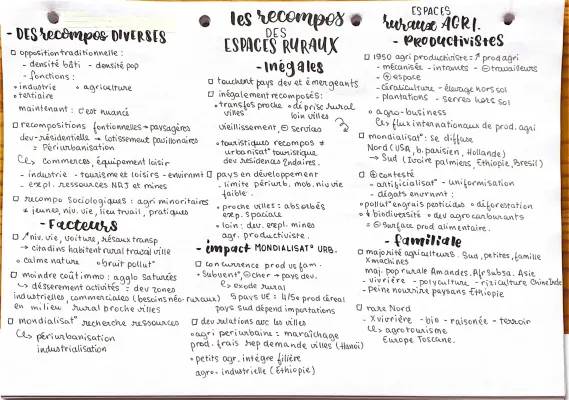 les recompos
DES
ESPACES RURAUX
- DES recompos DIVERSES
□ opposition traditionnelle :
- densité bâti - densité pop
- fonctions :
° industrie ° agriculture
° tertiaire
maintenant : c'est nuancé
□ recompositions fontionnelles → paysagères
dev résidentielle → lotissement pavillonaires
= Périurbanisation
↳ commerces, équipement loisir
- industrie - tourisme et loisirs - envirnmt
- expl. ressources NRJ et mines
□ recompo sociologiques : agri minoritaires
≠ jeunes, niv. vie, lieu travail, pratiques
- Facteurs
□ ↗ niv. vie, voiture, résaux transp
→ citadins habitent rural travail ville
° calme nature ° bruit pollut°
□ moindre coût immo : agglo saturées
↳ désserement activités = dev zones
industrielles, commerciales (besoins néo-ruraux)
en milieu rural proche villes
□ mondialisat° recherche ressources
↳ périurbanisation
industrialisation
- Inégales
□ touchent pays dev et émergeants
□ inégalement recomposés:
° transfos proche villes ° déprise rural loin villes
vieillissement, ⊖ services
° touristiques recompos ≠
urbanisat° touristique
dev residences 2ndaires.
□ pays en développement
- limite périurb. mob. niv vie
faible.
- proche villes : absorbés
exp. spaciale
- loin : dev. expl. mines
agr. productiviste.
- impact MONDIALISAT° URB.
□ concurrence prod vs fam.
° Subvent°, ⊖ cher → pays dev.
↳ exode rural
5 pays UE : 4/5e prod céréal
pays sud dépend importations
□ dev relations avec les villes
° agri periurbaine : maraîchage
prod. frais rep demande villes (Hanoï)
° petits agr. intègre filière
agro-industrielle (Ethiopie)
ESPACES
ruraux AGRI.
- PRODUCTIVISTES
□ 1950 agri productiviste : ↗ prod agri
- mécanisée - intrants - ⊖ travailleurs
- ⊕ espace
- céréaliculture - élevage hors sol
- plantations - serres hors sol
° agro-business
↳ flux internationaux de prod. agri
□ mondialisat° : se diffuse
Nord (USA, b. parisien, Hollande)
→ Sud (Ivoire palmiers, Ethiopie, Brésil)
□ ⊕ contesté
- artificialisat° - uniformisation
- dégats envirnmt :
° pollut° engrais pesticides ° déforestation
° ↓ biodiversité ° dev agrocarburants
° ⊖ surface prod alimentaire.
- familiale
□ majorité agriculteurs. Sud, petites, famille
X machines
maj. pop rurale Amandes. Afr Subsa. Asie
- vivrière - polyculture - riziculture Chine Inde
- peine nourrire paysans Ethiopie
□ rare Nord
- X vivrière - bio - raisonée - terroir
↳ agrotourisme
Europe Toscane.